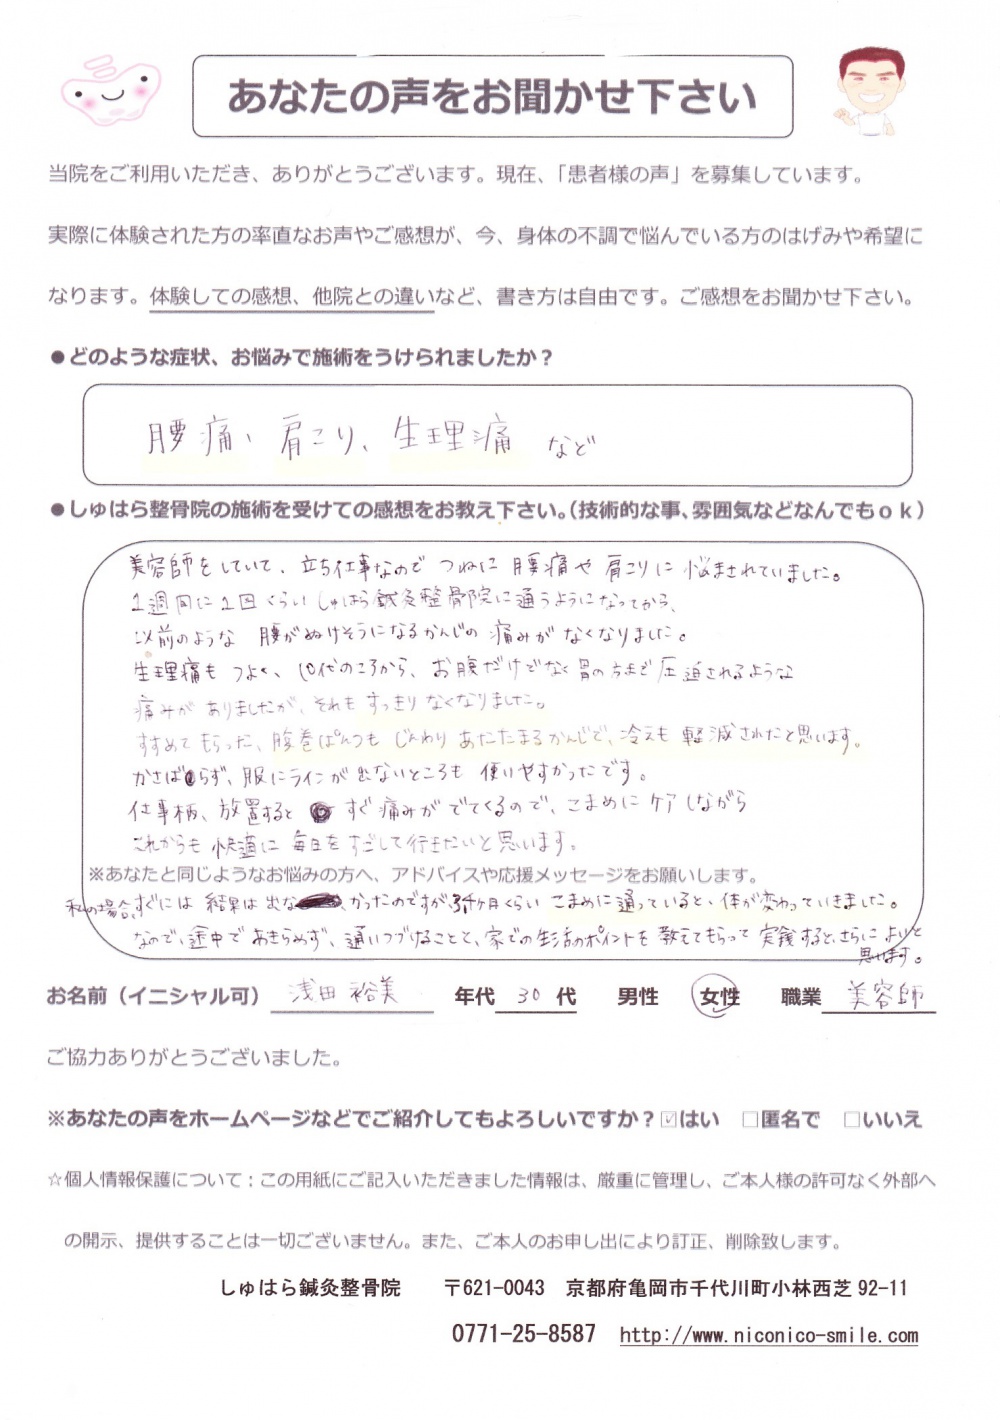 あなたの声をお聞かせ下さい
当院をご利用いただき、ありがとうございます。現在、「患者様の声」を募集しています。
実際に体験された方の率直なお声やご感想が、今、身体の不調で悩んでいる方のはげみや希望に
なります。体験しての感想、他院との違いなど、書き方は自由です。ご感想をお聞かせ下さい。
●どのような症状、お悩みで施術をうけられましたか？
腰痛、肩こり、生理痛 など
●しゅはら整骨院の施術を受けての感想をお教え下さい。（技術的な事、雰囲気などなんでもｏｋ）
美容師をしていて、立ち仕事なので つねに 腰痛や 肩こりに 悩まされていました。
1週間に1回くらい しゅはら鍼灸整骨院に通うようになってから、
以前のような 腰がぬけそうになるかんじの 痛みが なくなりました。
生理痛も つよく、10代のころから、お腹だけでなく 胃の方まで 圧迫されるような
痛みが ありましたが、それも すっきり なくなりました。
すすめて もらった、腹巻ぱんつも じんわり あたたまるかんじで、冷えも 軽減されたと思います。
かさばらず、服にラインが 出ないところも 使いやすかったです。
仕事柄、放置すると すぐ 痛みが でてくるので、こまめに ケアしながら
これからも 快適に 毎日を すごして行きたいと 思います。
※あなたと同じようなお悩みの方へ、アドバイスや応援メッセージをお願いします。
私の場合、すぐには 結果は 出なかったのですが、3ヶ月くらい こまめに通っていると、体が変わっていきました。
なので、途中で あきらめず、通いつづけることと、家での生活のポイントを 教えてもらって 実践すると、さらに よいと
思います。
お名前（イニシャル可） 浅田 裕美 年代 30 代 男性 女性 職業 美容師
ご協力ありがとうございました。
※あなたの声をホームページなどでご紹介してもよろしいですか？☑はい □匿名で □いいえ
☆個人情報保護について：この用紙にご記入いただきました情報は、厳重に管理し、ご本人様の許可なく外部へ
の開示、提供することは一切ございません。また、ご本人のお申し出により訂正、削除致します。
しゅはら鍼灸整骨院 〒621-0043 京都府亀岡市千代川町小林西芝 92-11
0771-25-8587 http://www.niconico-smile.com